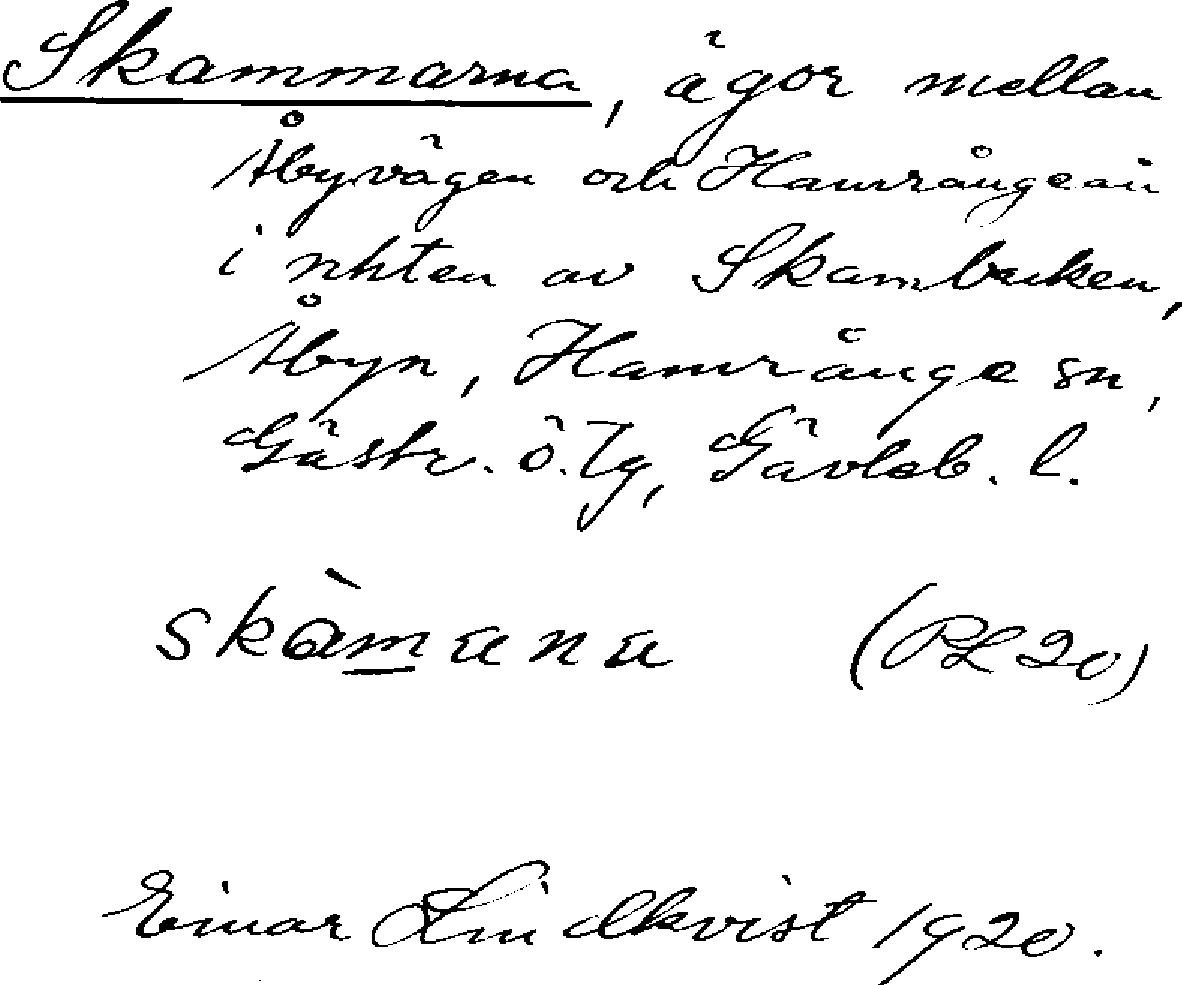 Skammarna, ägor mellan
Åbyvägen och Hamrångeån
i rikten av Skambacken,
Åbyn, Hamrånge sn,
Gästr. ö. Tg, Gävleb. l.
skàmana (PL 20)
Einar Lindkvist 1920.